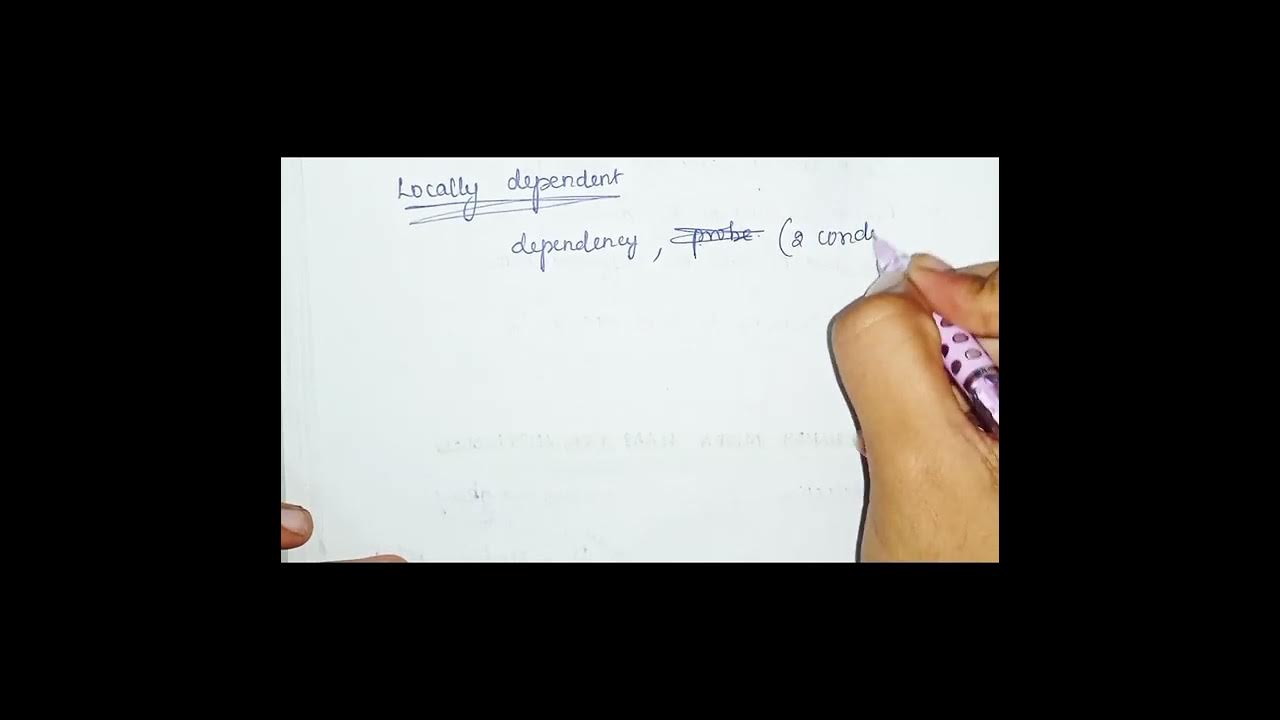 Locally dependent
dependency, probe (2 cond